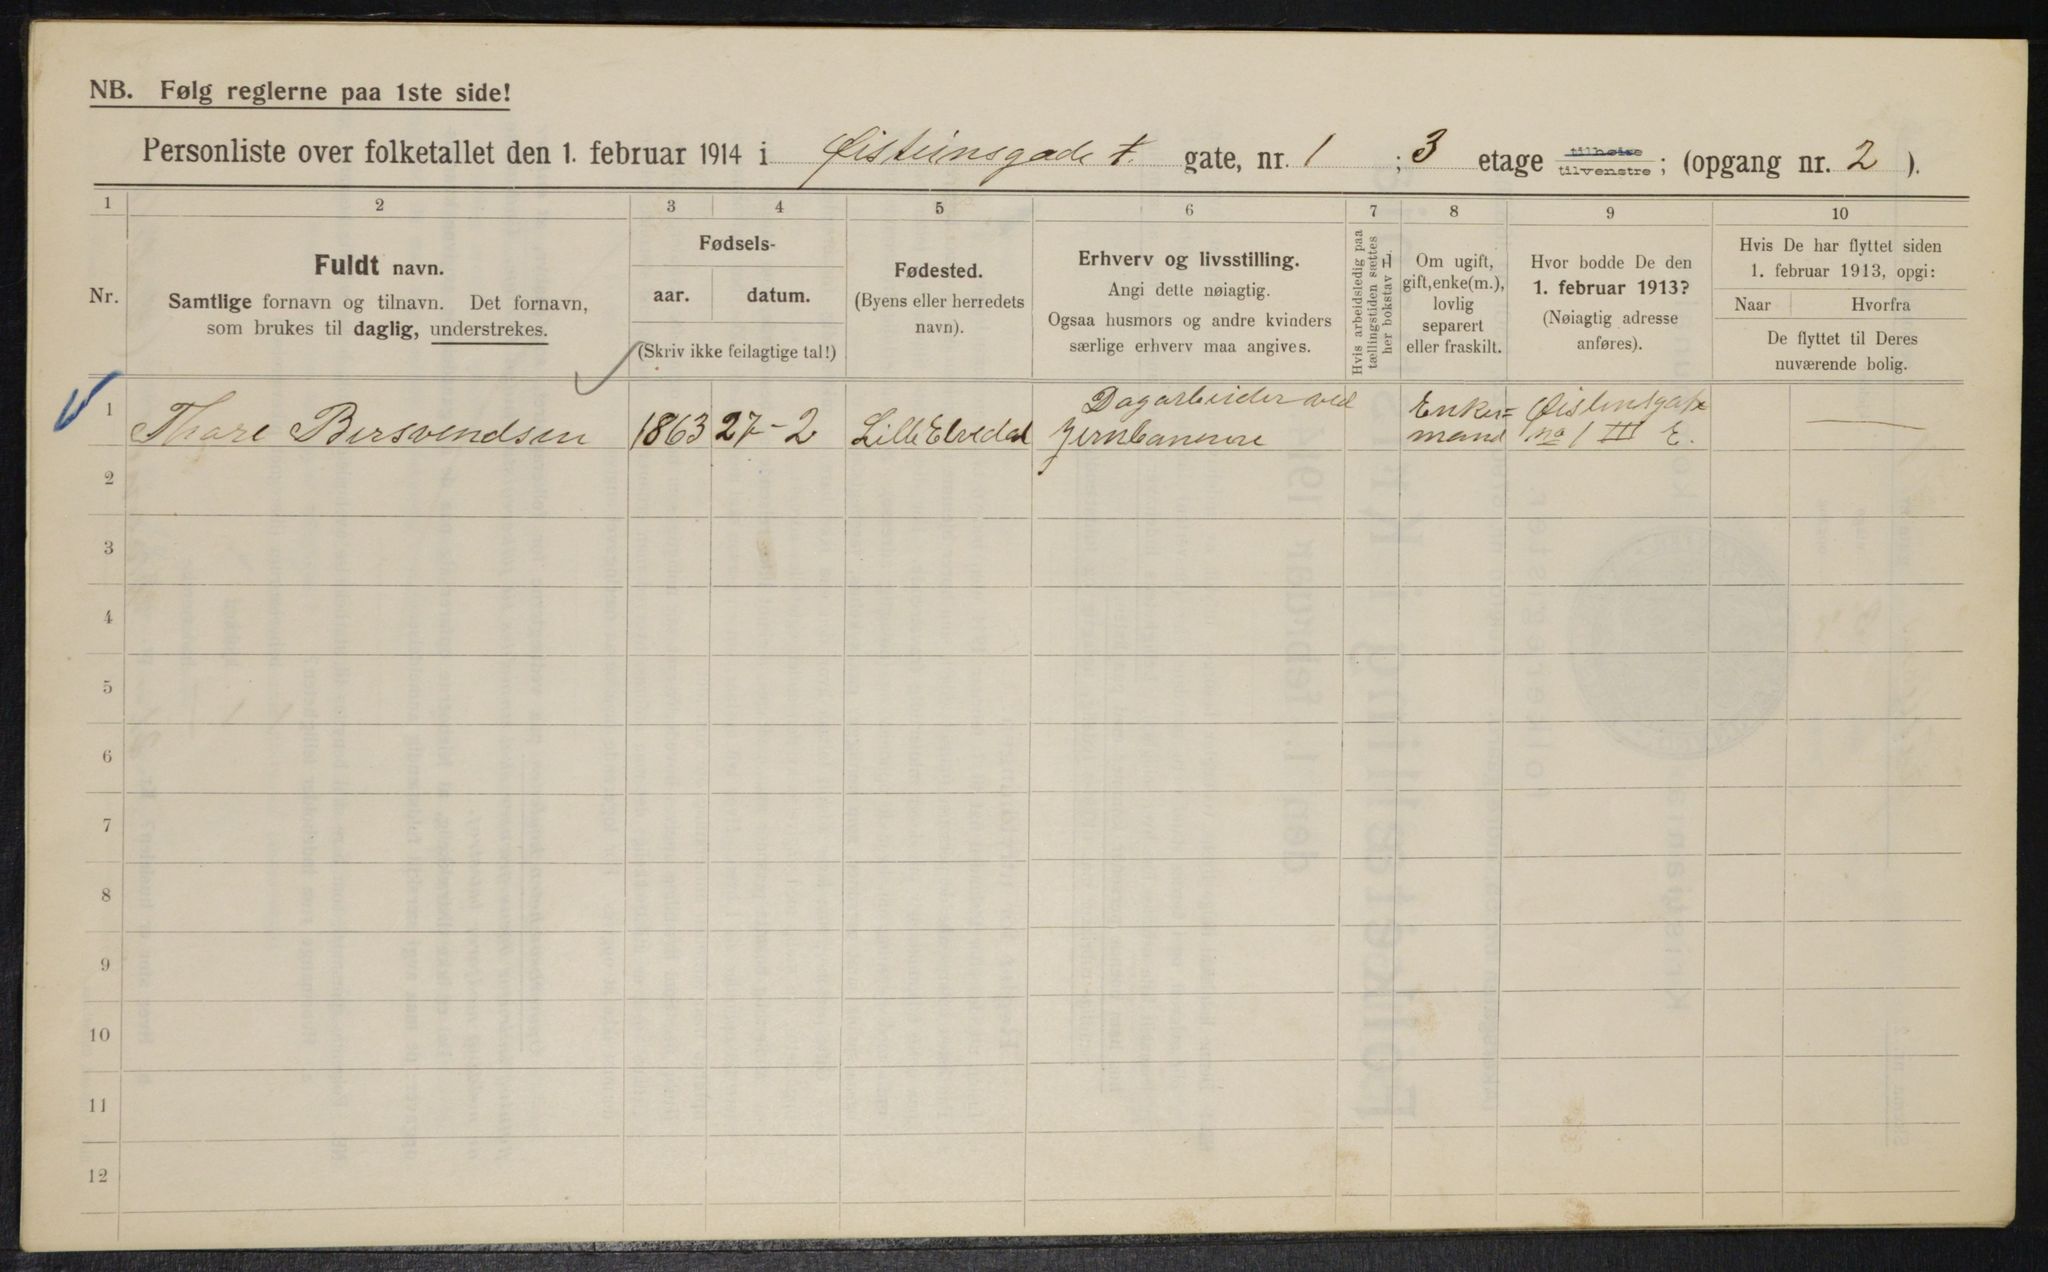 NB. Følg reglerne paa 1ste side!
Personliste over folketallet den 1. februar 1914 i Øisteinsgade gate, nr. 1 ; 3 etage tilhøire tilvenstre ; (opgang nr. 2 ).
1 2 3 4 5 6 7 8 9 10
Nr.
Fuldt navn.
Samtlige fornavn og tilnavn. Det fornavn,
som brukes til daglig, understrekes.
Fødsels-
aar. datum.
(Skriv ikke feilagtige tal!)
Fødested.
(Byens eller herredets
navn).
Erhverv og livsstilling.
Angi dette nøiagtig.
Ogsaa husmors og andre kvinders
særlige erhverv maa angives.
Hvis arbeidsledig paa
tællingstiden sættes
her bokstav L.
Om ugift,
gift, enke(m.),
lovlig
separert
eller fraskilt.
Hvor bodde De den
1. februar 1913?
(Nøiagtig adresse
anføres).
Hvis De har flyttet siden
1. februar 1913, opgi:
Naar Hvorfra
De flyttet til Deres
nuværende bolig.
1 Thore Bersvendsen 1863 27-2 Lille Elvedal
Dagarbeider ved
Jernbanerne
Enke=
mand
Øistensgate
no 1 III E.
2
3
4
5
6
7
8
9
10
11
12